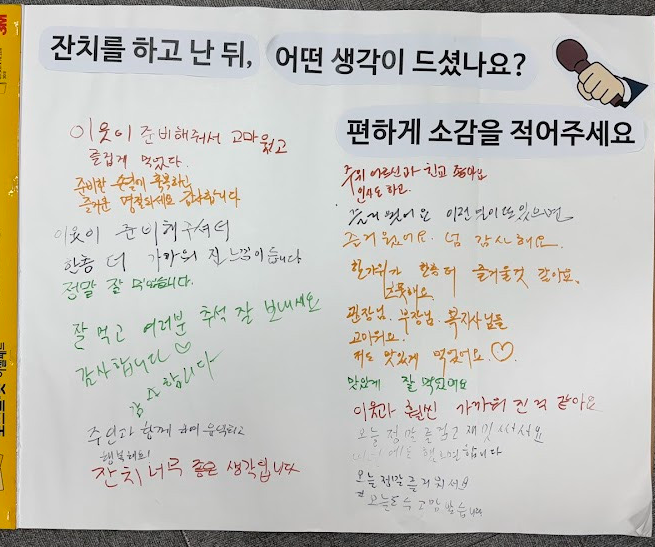 잔치를 하고 난 뒤, 어떤 생각이 드셨나요?
편하게 소감을 적어주세요
이웃이 준비해줘서 고마웠고
즐겁게 먹었다.
준비한 손길에
즐거운 명절되세요 감사합니다
이웃이 준비해주셔서
한층 더 가까워 진 느낌이 듭니다
정말 잘 먹었습니다.
잘 먹고 여러분 추석 잘 보내세요
감사합니다 ♡
감사합니다
주민과 함께
행복해요!
잔치 너무 좋은 생각입니다
주위 어르신과 친교 좋아요
인사도 하고.
즐거웠어요 이런일이 또 있으면
즐거웠어요. 넘 감사해요.
한가위가 한층 더 즐거울것 같아요.
관장님. 부장님. 복지사님들
고마워요.
저도 맛있게 먹었어요. ♡
맛있게 잘 먹었어요
이웃과 훨씬 가까워 진 것 같아요
오늘 정말 즐겁고
오늘 정말 즐거웠서요
오늘도